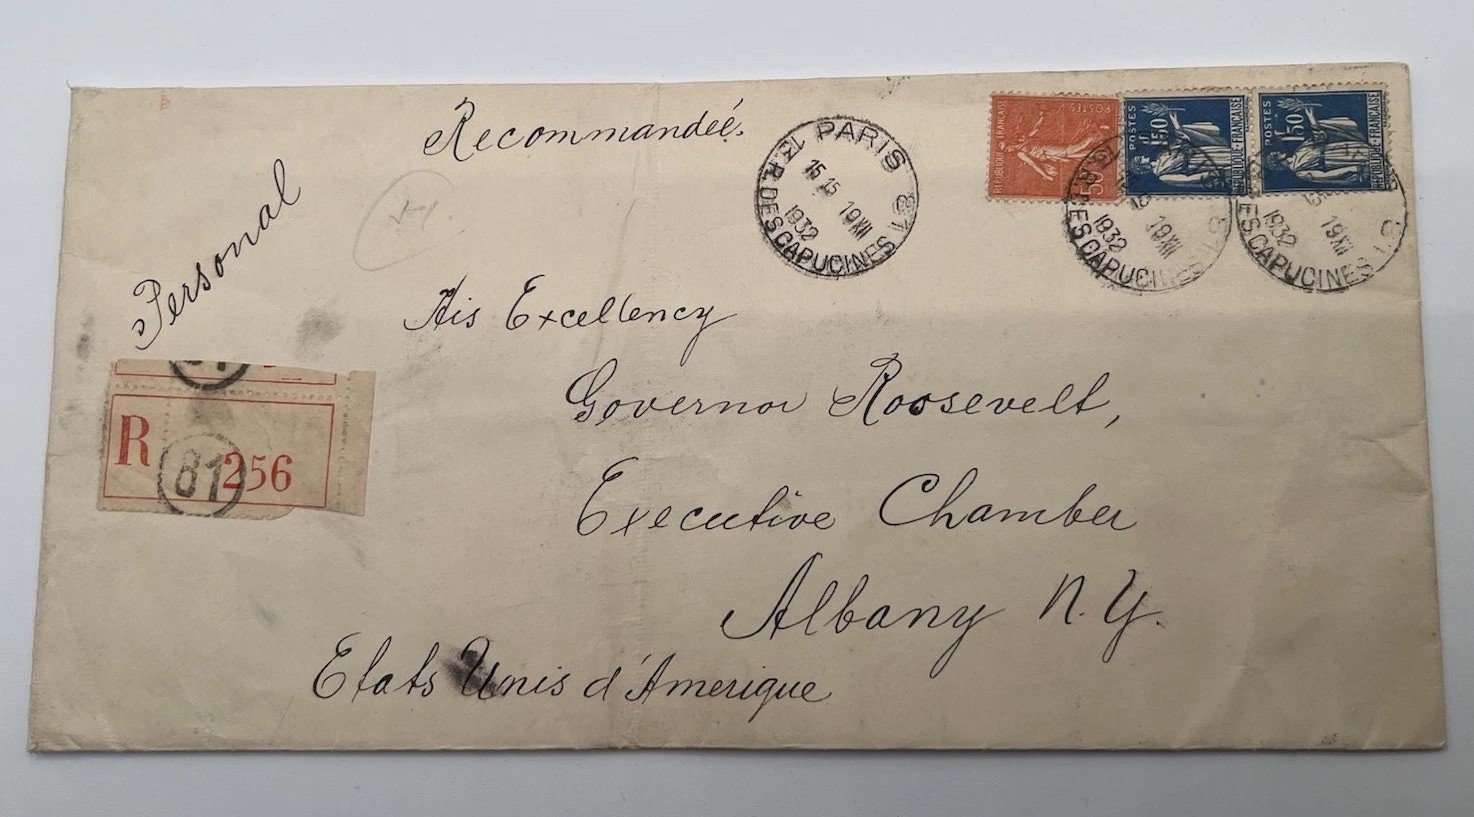 Recommandée.
Personal
PARIS 81
15 15
19 XII
1932
R. DES CAPUCINES
REPUBLIQUE FRANÇAISE
POSTES
50
POSTES
1F50
REPUBLIQUE-FRANÇAISE
POSTES
1F50
REPUBLIQUE-FRANÇAISE
19 XII
1932
R. DES CAPUCINES
19 XII
1932
DES CAPUCINES
His Excellency
Governor Roosevelt,
Executive Chamber
Albany N.Y.
Etats Unis d'Amerique
R
81
256